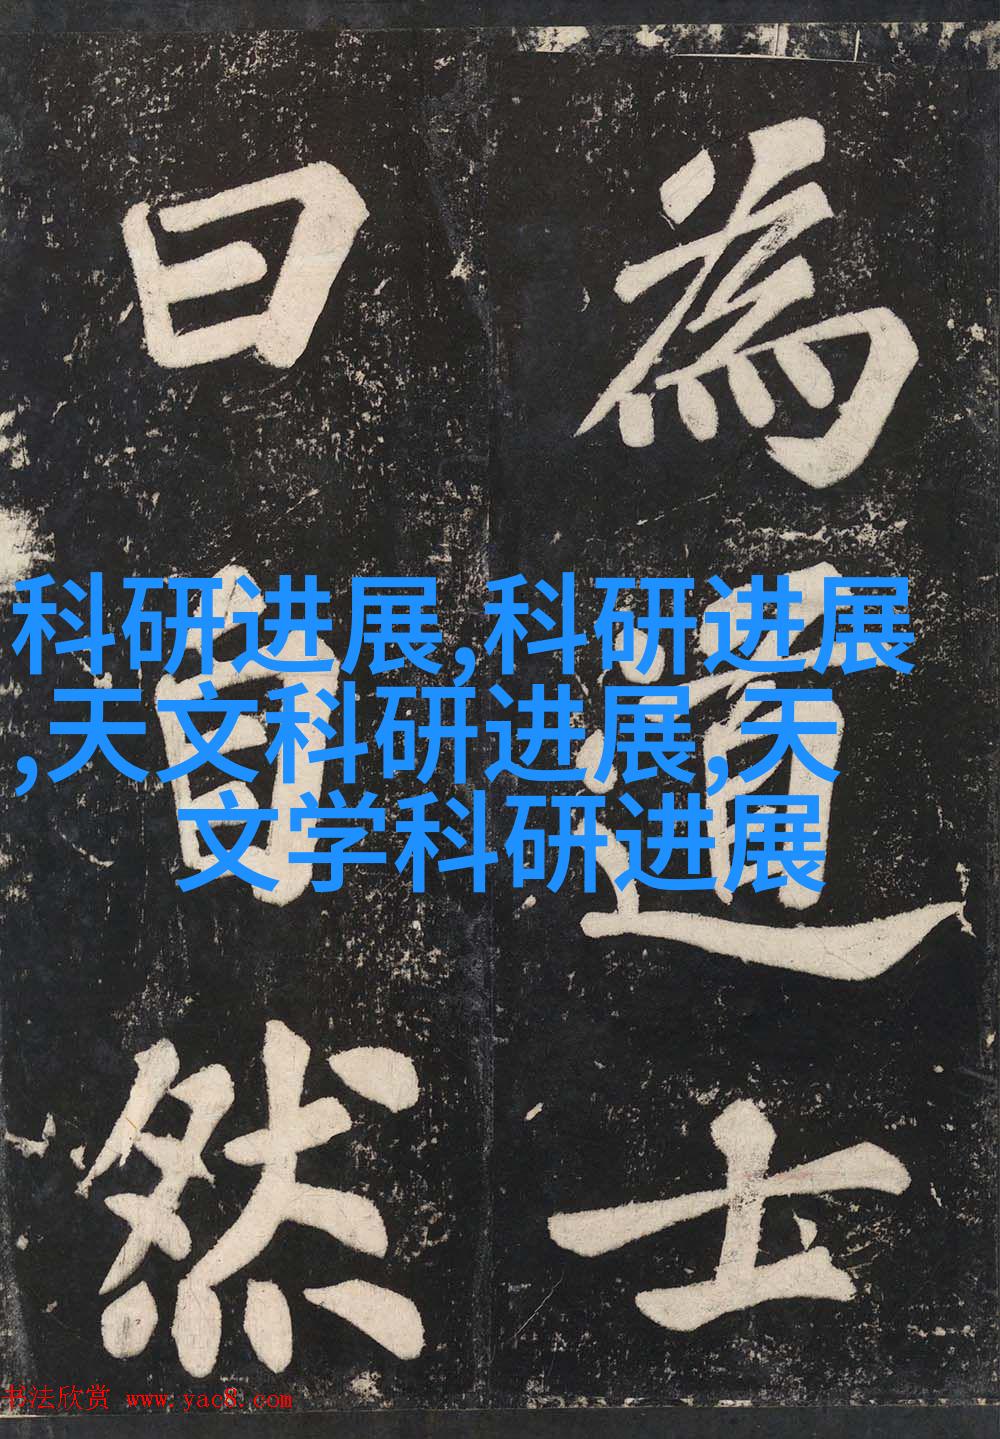 為道士
曰自然
科研进展,科研进展
,天文科研进展,天
文学科研进展
书法欣赏 www.yac8.com